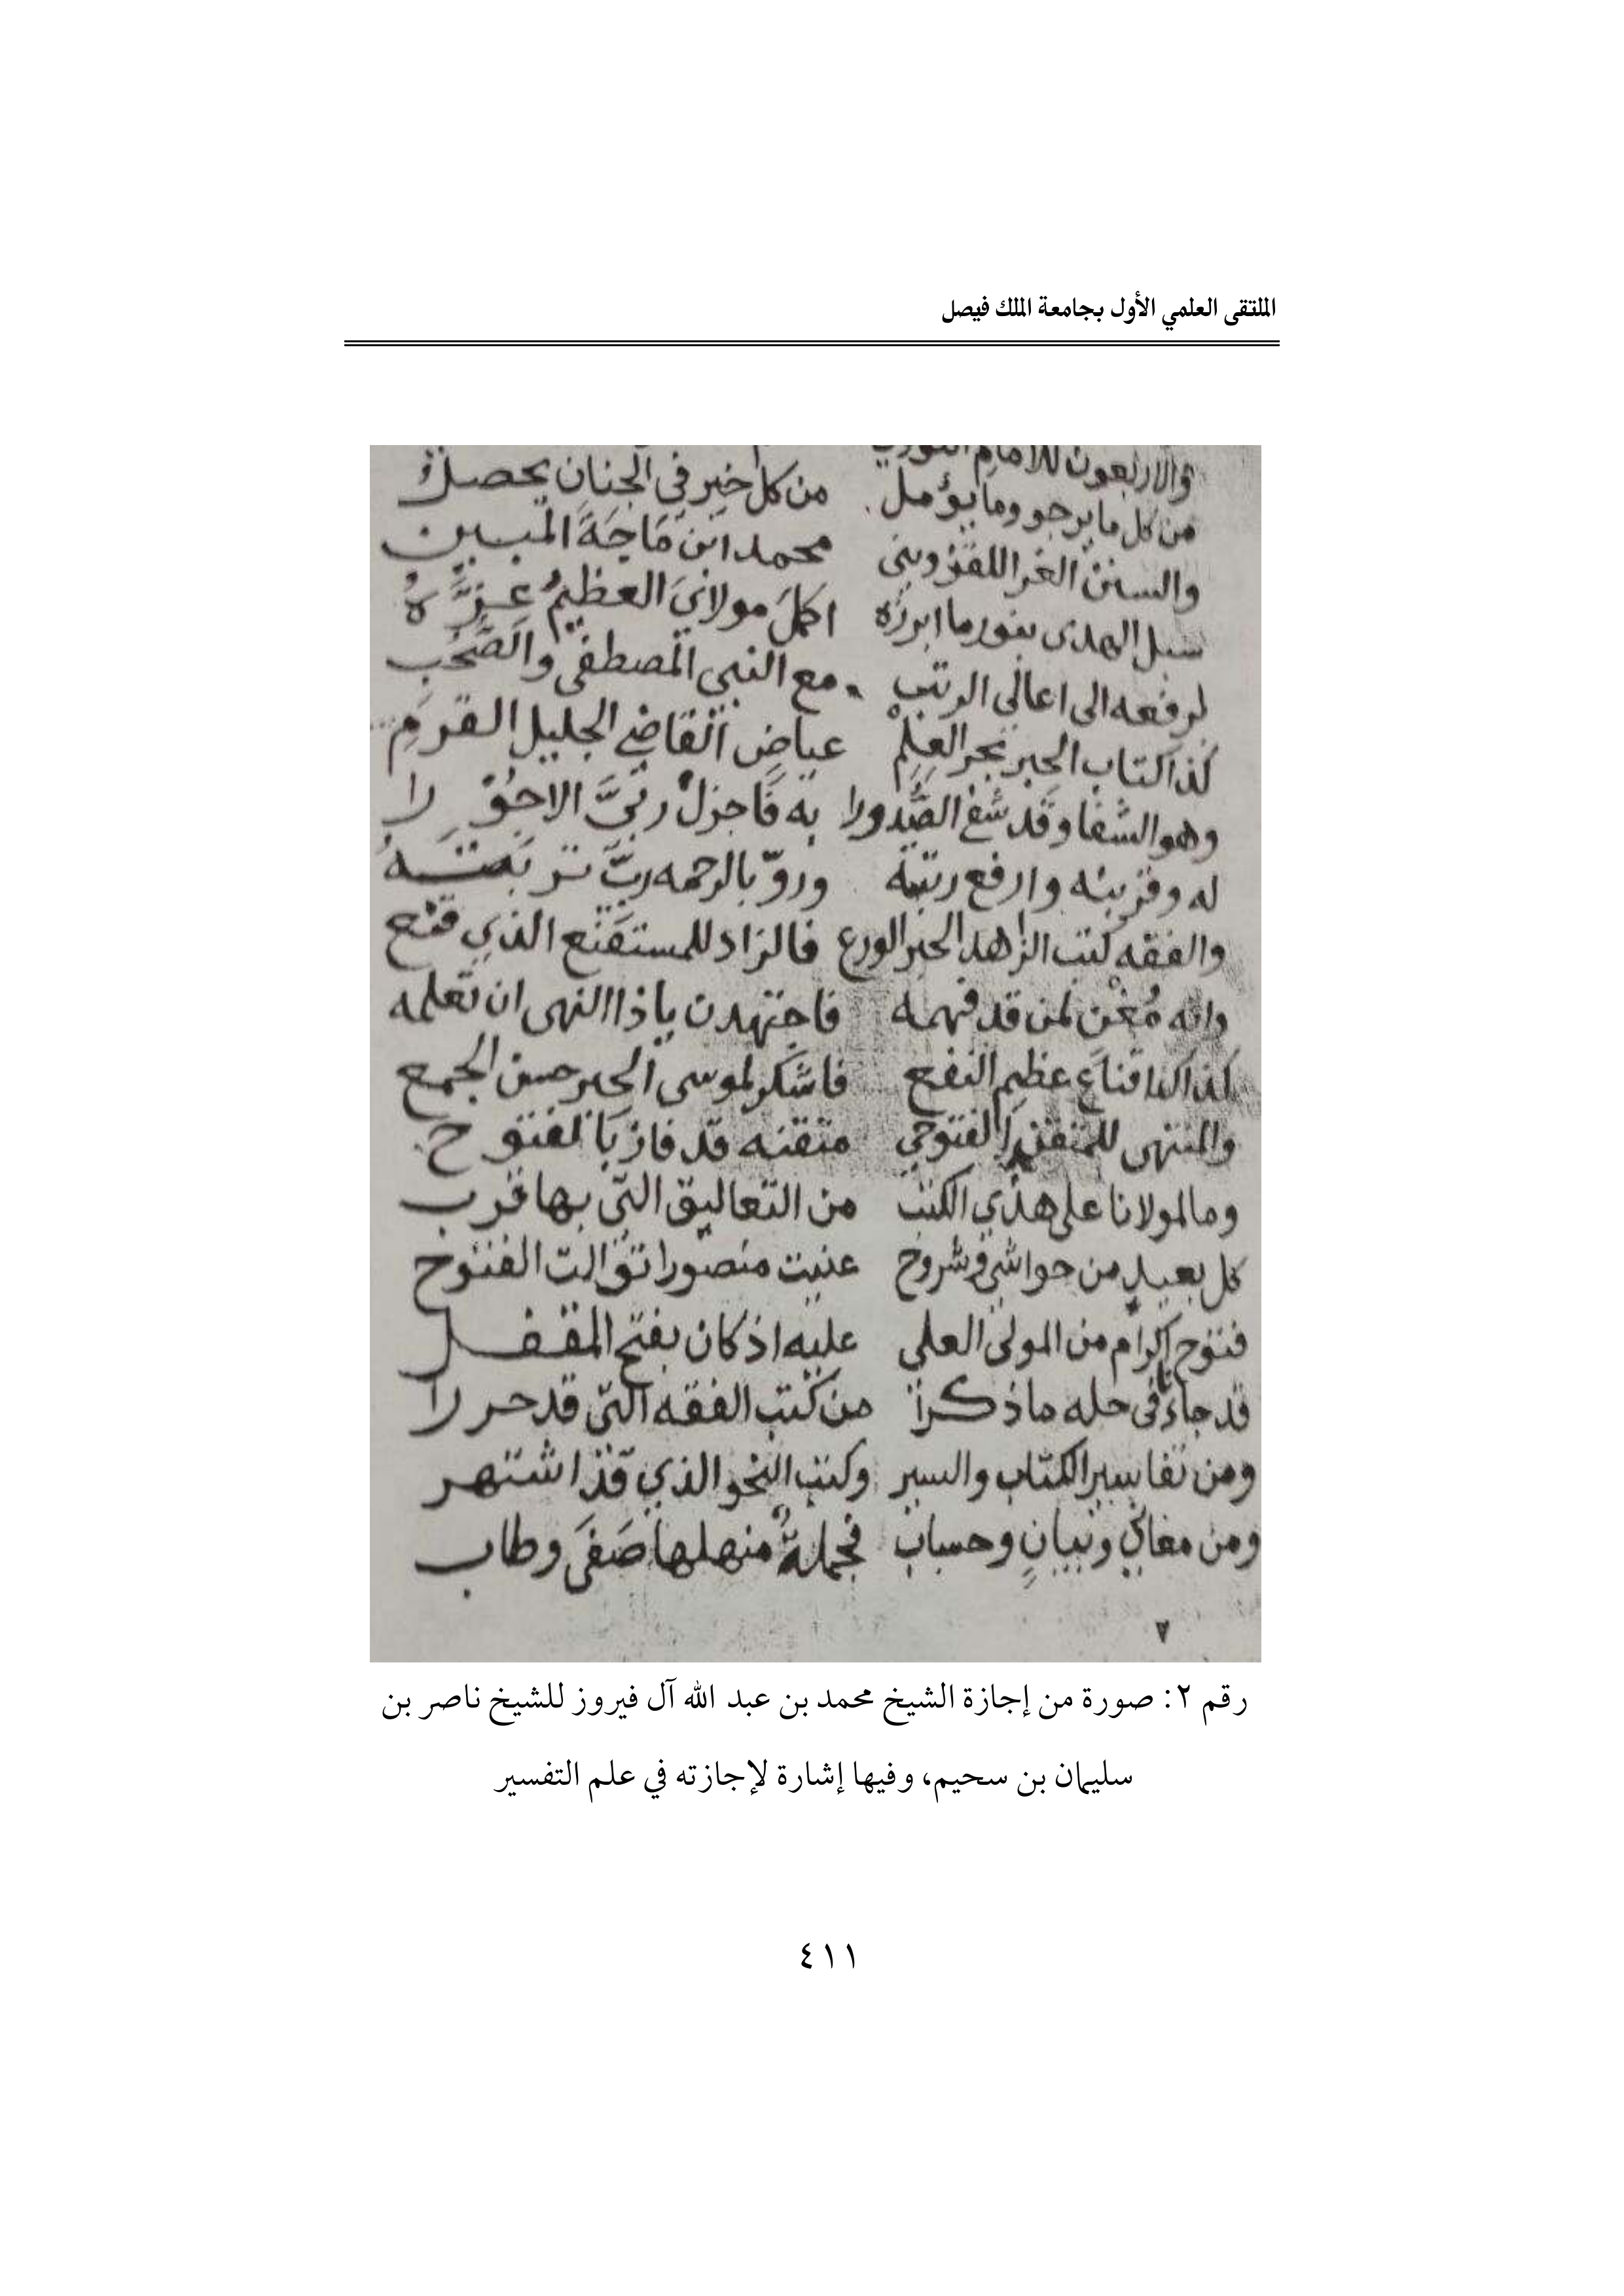 الملتقى العلمي الأول بجامعة الملك فيصل
والاربعون للامام
من كل ما يرجو وما يؤمل من كل خير في الجنان يحصل
والسنن الغر اللقزويني محمد ابن مَاجَةَ المبين
سبل الهدى بنور ما ابرزه اكمل مولاي العظيم عزه
لرفعه الى اعالى الرتب مع النبي المصطفى والصَّحب
كذا كتاب الحبر بحر العِلْمِ عياضٍ القاضي الجليل القرم
وهو الشفا وقد شفى الصُّدورا به فاجزل ربيَّ الاجورا
له وقربنه وارفع رتبته وروّ بالرحمه ربّ تربته
والفقه كتب الزاهد الحبر الورع فالزاد للمستقنع الذي
وانه مُغْنٍ لمن قد فهمه فاجتهدن ياذا النهى ان تعلمه
كذا كذا اقناع عظيم النفع فاشكر لموسى الحبر حسن الجمع
والمنتهى للمتقن الفتوحي متقنه قد فاز بالفتوح
وما لمولانا على هذي الكتب من التعاليق التي بها قرب
كل بعيد من حواشي وشروح عنيت منصورا توالت الفتوح
فتوح اكرام من المولى العلي عليه اذ كان بفتح المقفل
قد جاء في حله ما ذكرا من كتب الفقه التي قد حررا
ومن تفاسير الكتاب والسير وكتب النحو الذي قد اشتهر
ومن معاني وبيانٍ وحساب فجملةٌ منهلها صَفَى وطاب
٧
رقم ٢: صورة من إجازة الشيخ محمد بن عبد الله آل فيروز للشيخ ناصر بن
سليمان بن سحيم، وفيها إشارة لإجازته في علم التفسير
٤١١